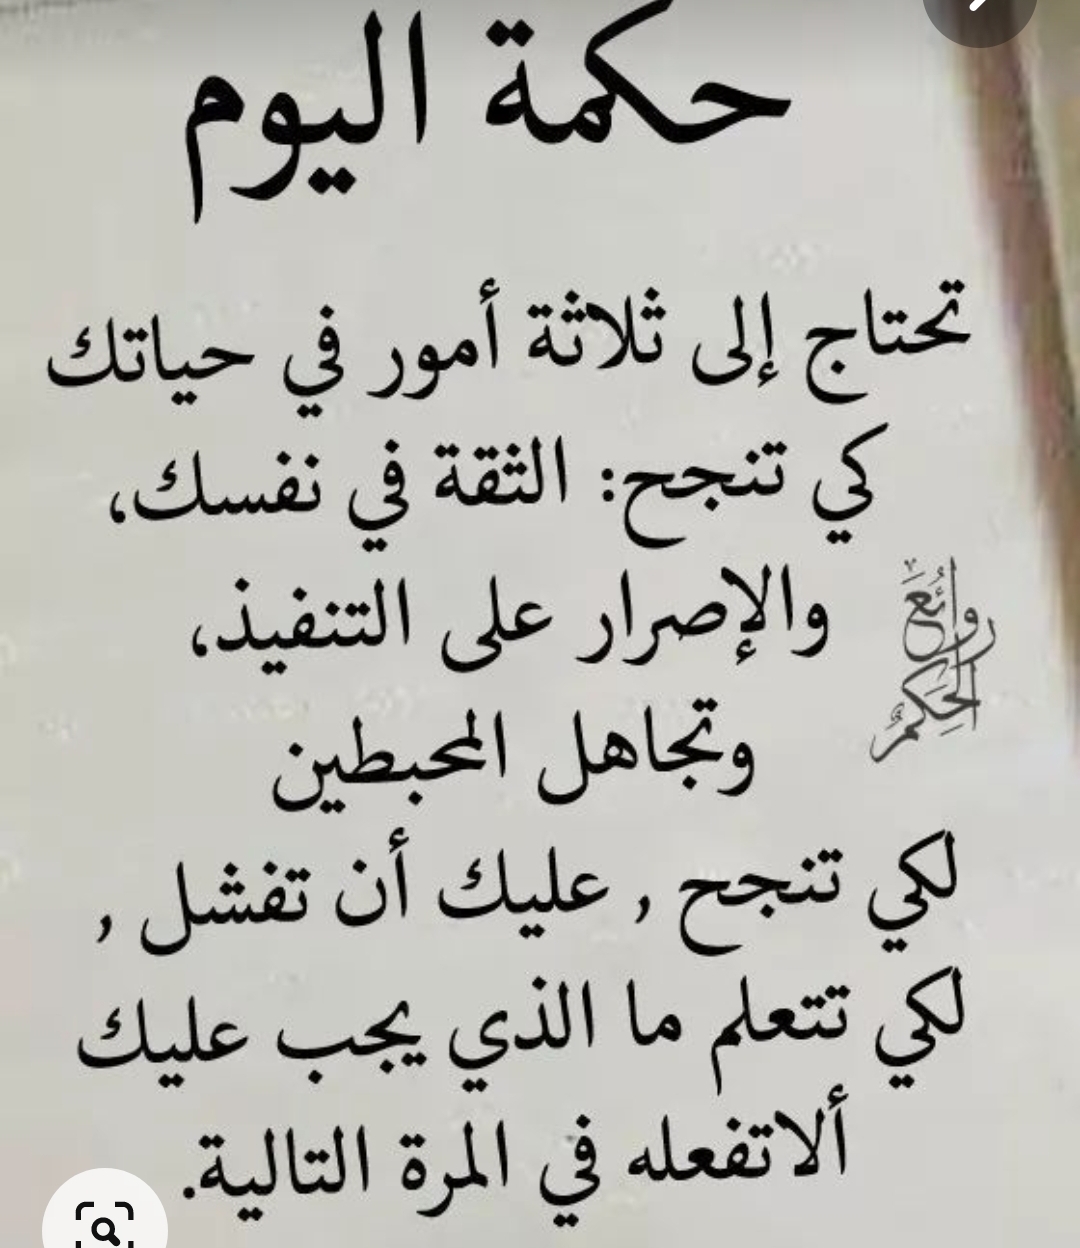 حكمة اليوم
تحتاج إلى ثلاثة أمور في حياتك
كي تنجح: الثقة في نفسك،
والإصرار على التنفيذ،
وتجاهل المحبطين
روائع
الحكم
لكي تنجح , عليك أن تفشل ,
لكي تتعلم ما الذي يجب عليك
ألاتفعله في المرة التالية.